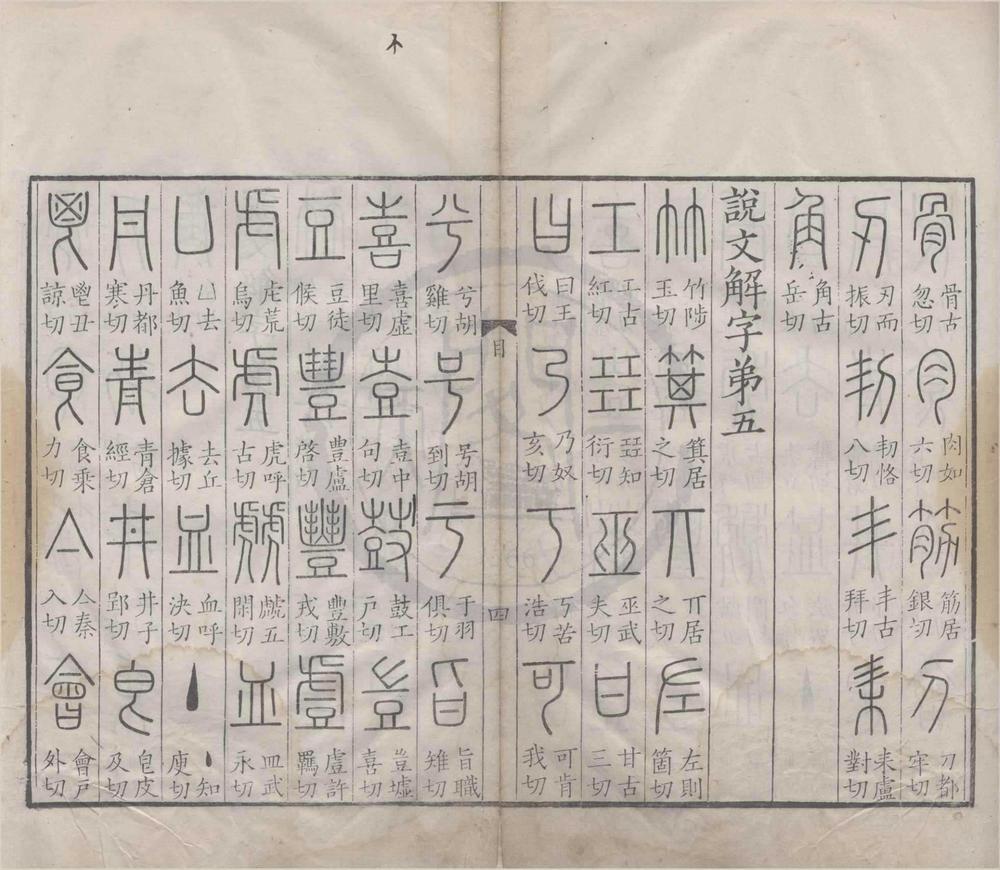 骨骨古忽切肉肉如六切筋筋居銀切刀刀都牢切
刃刃而振切㓞㓞恪八切丯丯古拜切耒耒盧對切
角角古岳切
說文解字弟五
竹竹陟玉切箕箕居之切丌丌居之切左左則箇切
工工古紅切㠭㠭知衍切巫巫武夫切甘甘古三切
曰曰王伐切乃乃奴亥切丂丂苦浩切可可肯我切
目 四
兮兮胡雞切号号胡到切亏于羽俱切旨旨職雉切
喜喜虛里切壴壴中句切鼓鼓工戶切豈豈墟喜切
豆豆徒候切豊豊盧啓切豐豐敷戎切䖒䖒許羈切
虍虍荒烏切虎虎呼古切虤虤五閑切皿皿武永切
凵凵去魚切去去丘據切血血呼決切丶丶知庾切
丹丹都寒切青青倉經切井井子郢切皀皀皮及切
鬯鬯丑諒切食食乘力切亼亼秦入切會會戶外切